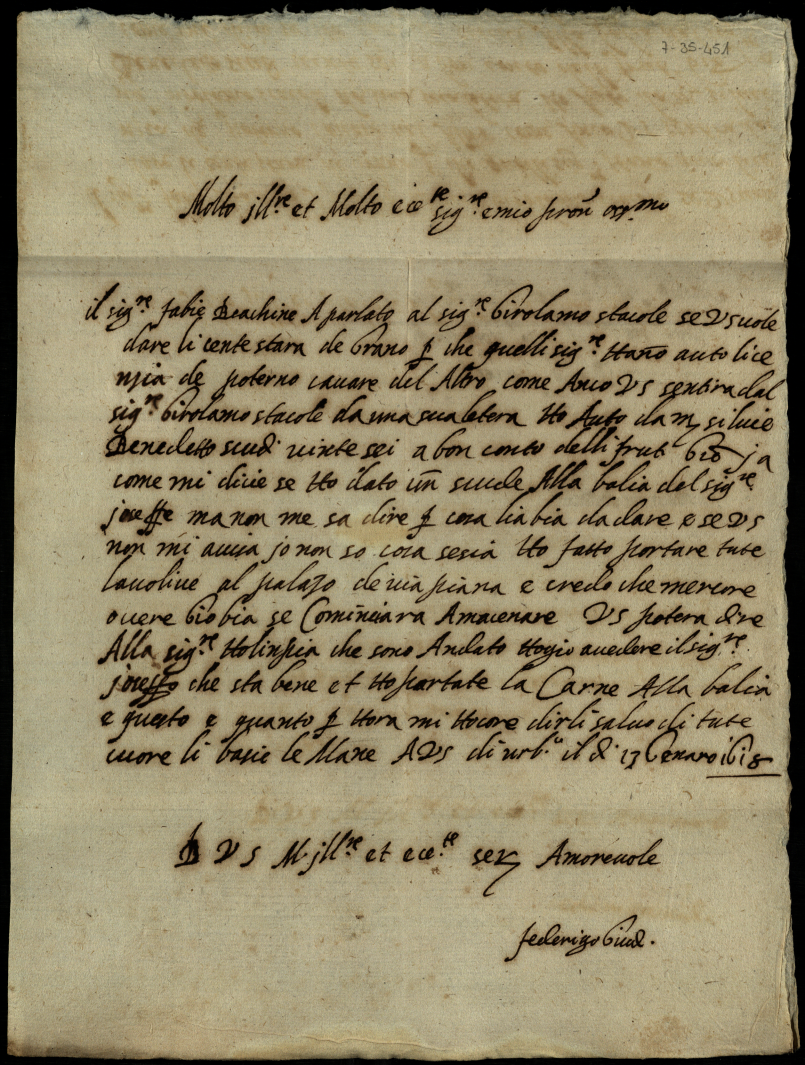 7-35-451
Molto jll.re et Molto ece.te sig.re e mio pron oss.mo
il sig.re fabie Beachine A parlato al sig.re Girolamo stacole se VS vuole
dare li cente stara de Grano p che quelli sig.re ttano auto lice
nzia de poterno cavare del Altro come Anco VS sentira dal
sig.re Girolamo stacole da una sua letera tto Auto da m silvie
Benedetto scudi vinte sei a bon conto delli frut
come mi dicie se tto dato un scude Alla balia del sig.re
joseffe ma non me sa dire p cosa liabia da dare e se VS
non mi avisa jo non so cosa sesia tto fatto portare tute
lavolive al palazo de via piana e credo che mercore
overe Giobia se Cominciara Amacenare VS potera dire
Alla sig.re ttolinpia che sono Andato ttogio avedere il sig.re
joseffo che sta bene et tto portate la Carne Alla balia
e questo e quanto p ttora mi ttocore dirli salvo di tute
cuore li bascie le Mane A VS di urb.o il di 13 Genaro 1618
D VS M jll.re et ece.te ser Amorevole
federigo Giud.